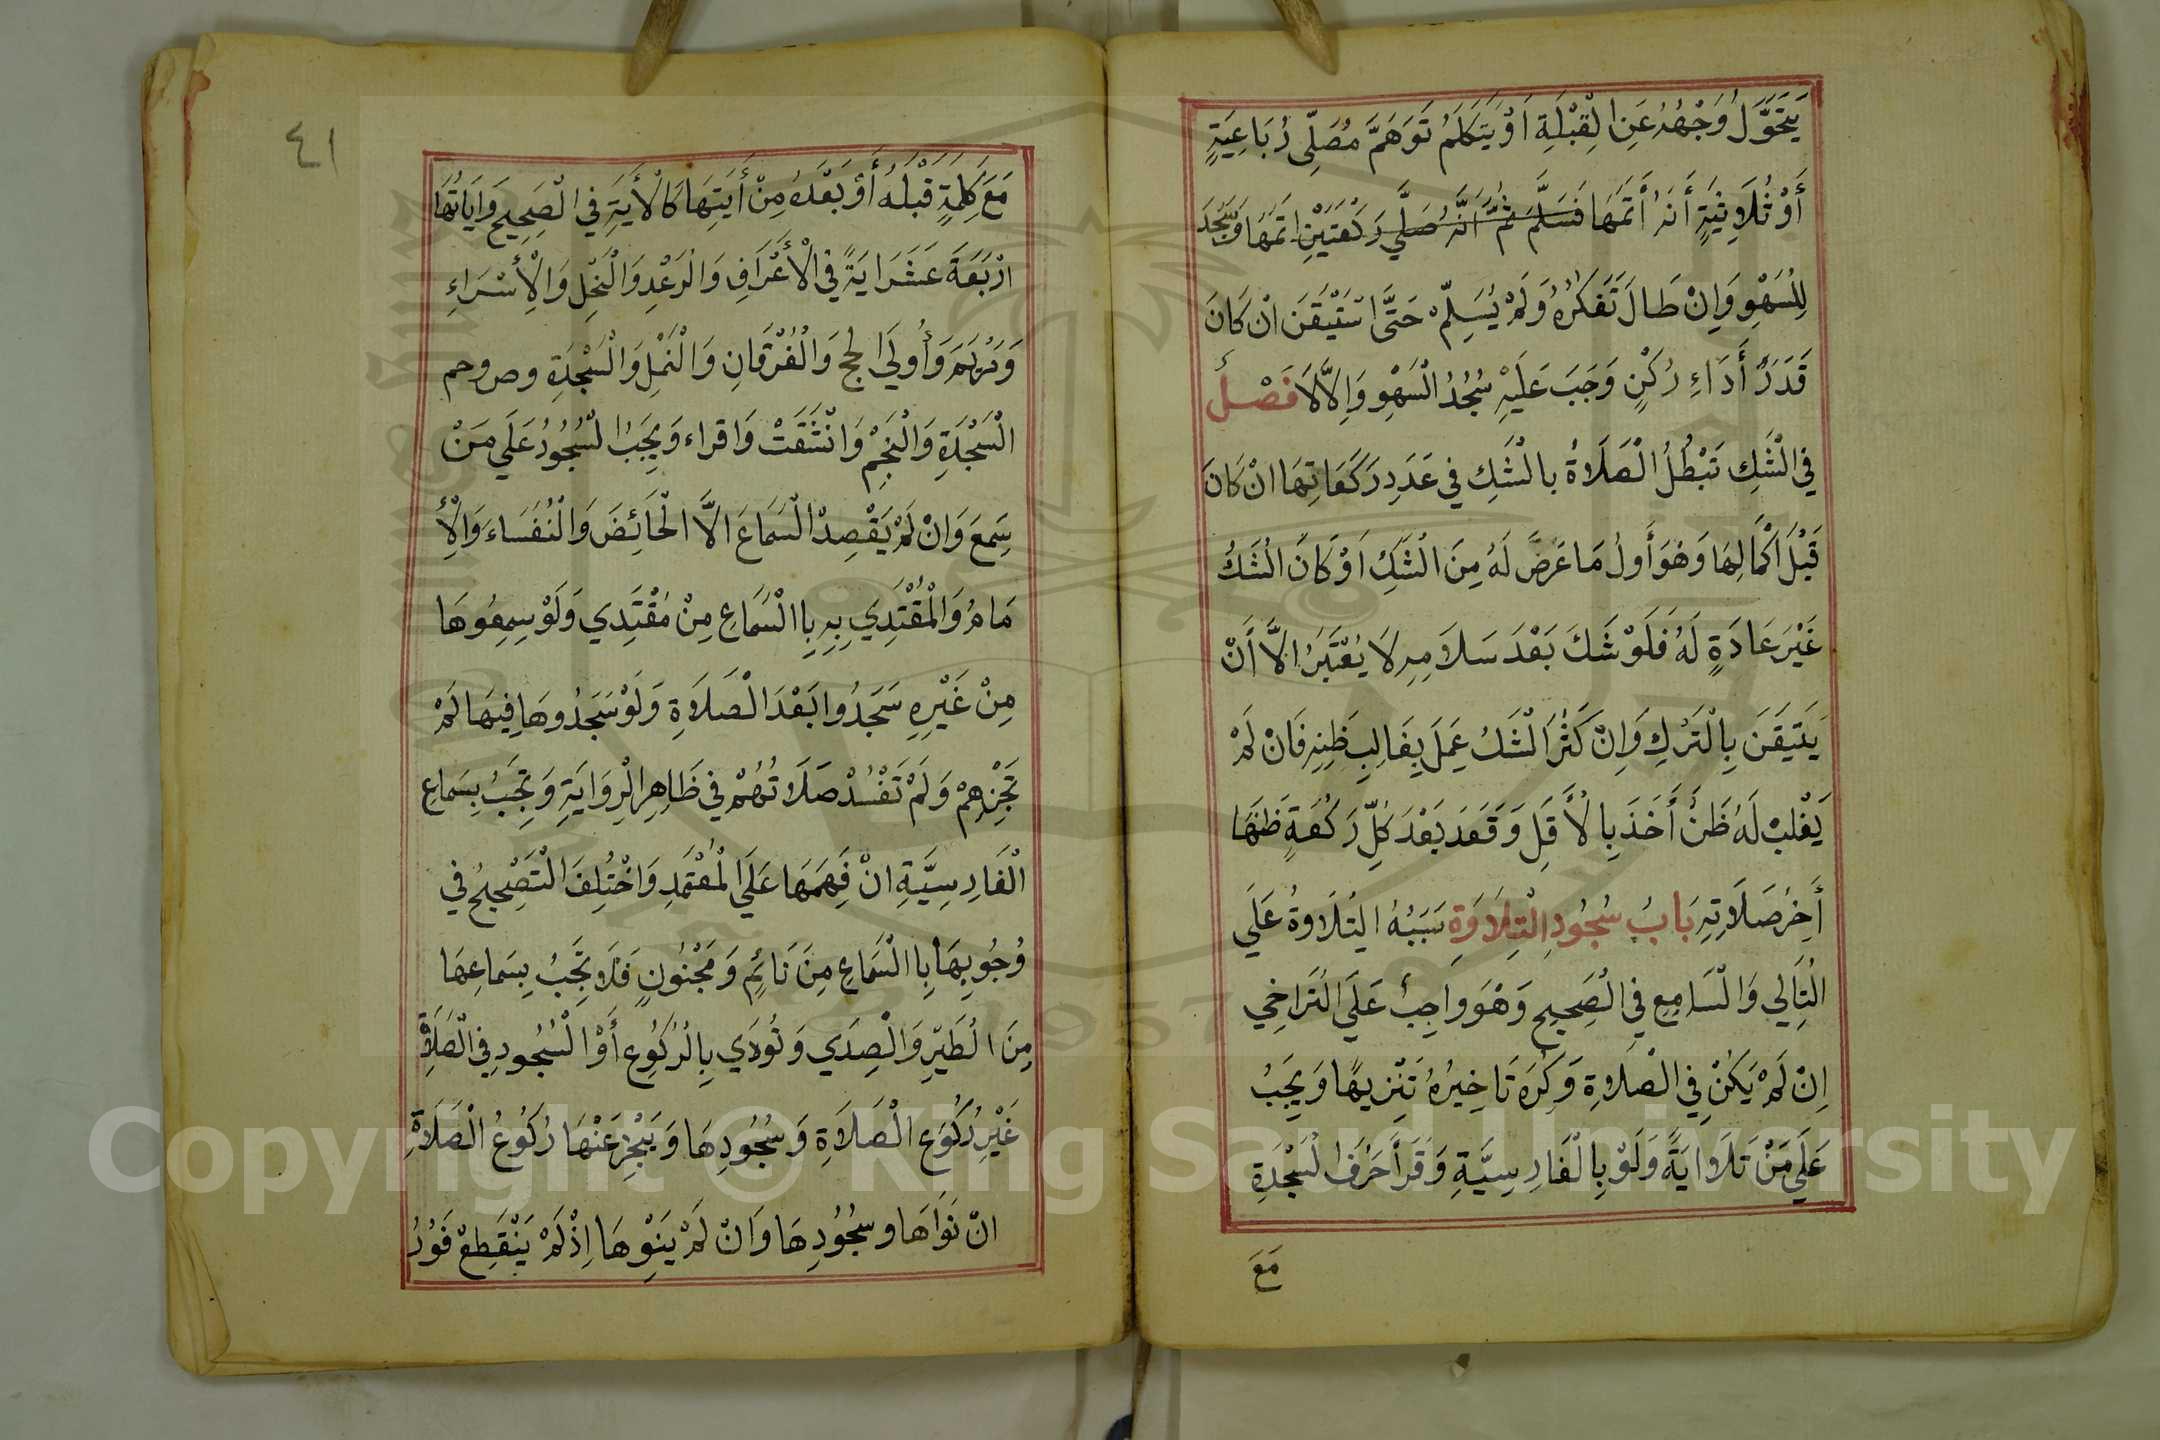 يَتَحَوَّلُ وَجْهُهُ عَنِ الْقِبْلَةِ اَوْ يَتَكَلَّمُ تَوَهَّمَ مُصَلِّى رُبَاعِيَةٍ
أَوْ ثُلَاثِيَةٍ أَنَّهُ أَتَمَّهَا فَسَلَّمَ ثُمَّ أَنَّهُ صَلَّي رَكْعَتَيْنِ اتَمَّهَا وَسَجَدَ
لِلسَّهْوِ وَاِنْ طَالَ تَفَكُّرُهُ وَلَمْ يُسَلِّمْ حَتَّى اسْتَيْقَنَ انْ كَانَ
قَدَرَ أَدَاءِ رُكْنٍ وَجَبَ عَلَيْهِ سُجُدُ الْسَهْوِ وَاِلاَّ لَا فَصْلٌ
فِي الْشَكِ تَبْطُلُ الْصَلَاةُ بالْشَكِ في عَدَدِ رَكَعَاتِهَا انْ كَانَ
قَبْلَ اَكْمَالِهَا وَهُوَ أَولُ مَا عَرَضَ لَهُ مِنَ الْشَكِ اَوْ كَانَ الْشَكُ
غَيْرَ عَادَةٍ لَهُ فَلَوْ شَكَ بَعْدَ سَلَامِهِ لَا يُعْتَبَرُ الاَّ أَنْ
يَتَيَقَنَ بِالْتَرْكِ وَاِنْ كَثُرَ الْشَكُ عَمِلَ بِغَالِبِ ظَنِهِ فَانْ لَمْ
يَغْلِبْ لَهُ ظَنٌ أَخَذَ بِالْأَقَلِ وَقَعَدَ بَعْدَ كُلِّ رَكْعَةٍ ظَنَهَا
أَخِرُ صَلَاتِهِ بَابُ سُجُودِ الْتِلَاوَةِ سَبَبُهُ الْتِلَاوةُ عَلَي
الْتَالِي وَالْسَامِعِ فِي الْصَحِيحِ وَهْوَ وَاجِبٌ عَلَي الْتَرَاخِي
اِنْ لَمْ يَكُنْ فِي الْصَلَاةِ وَكُرِهَ تَاخِيرُهُ تَنْزِيهًا وَيَجِبُ
عَلَي مَنْ تَلَا ايَةً وَلَوْ بِالْفَارِسِيَّةِ وَقَرَأَ حَرْفَ الْسَجْدَةِ
مَعَ
٤١
مَعَ كَلِمَةٍ قَبْلَهُ أَوْ بَعْدَهُ مِنْ أَيَتِهَا كَالْأَيَةِ فِي الْصَحِيحِ وَايَاتُهَا
ارْبَعَةَ عَشَرَ ايَةً فِي الْأَعْرَافِ وَالْرَعْدِ وَالْنَحْلِ وَالْأسْرَاءِ
وَمَرْيَمَ وَأُولَي الحج وَالْفُرْقَانِ وَالْنَمْلِ وَالْسَجْدَةِ وص وحم
الْسَجْدَةِ وَالْنَجْمِ وَانْشَقَتْ وَاقراء وَيَجِبُ الْسُجُودُ عَلَي مَنْ
سَمِعَ وَانْ لَمْ يَقْصِدْ الْسَمَاعَ الاَّ الْحَائِضَ وَالْنُفَسَاءَ وَالْأِ
مَامُ وَالْمُقْتَدِي بِهِ بِاالْسَمَاعِ مِنْ مُقْتَدِي وَلَوْ سِمِعُوهَا
مِنْ غَيْرِهِ سَجَدُوا بَعْدَ الْصَلَاةِ وَلَوْ سَجَدُوهَا فِيهَا لَمْ
تَجْزِهِمْ وَلَمْ تَفْسُدْ صَلَاتُهُمْ فِي ظَاهِرِ الْرِوَايَةِ وَيَجِبُ بِسَمَاعِ
الْفَارِسِيَّةِ انْ فَهِمَهَا عَلَي الْمُعْتَمَدِ وَاخْتُلِفَ الْتَصْحِيحُ في
وُجُوبِهَا بِاالْسَمَاعِ مِنَ نَائِمٍ وَمَجْنُونٍ فَلَا يَجِّبُ بِسَمَاعِهَا
مِنَ الْطَيْرِ وَالْصِدَي وَتُودَي بِالْرُكُوعِ أَوْ الْسُجُودِ فِي الْصَلَاةِ
غَيْرِ رُكُوعِ الْصَلَاةِ وَسُجُودِهَا وَيَجْزِ عَنْهَا رُكُوعُ الْصَلَاةِ
انْ نَوَاهَا وسُجُودِهَا وَانْ لَمْ يَنْوِهَا اِذْلَمْ يَنْقَطِعْ فَوْرُ
Copyright © King Saud University
1957